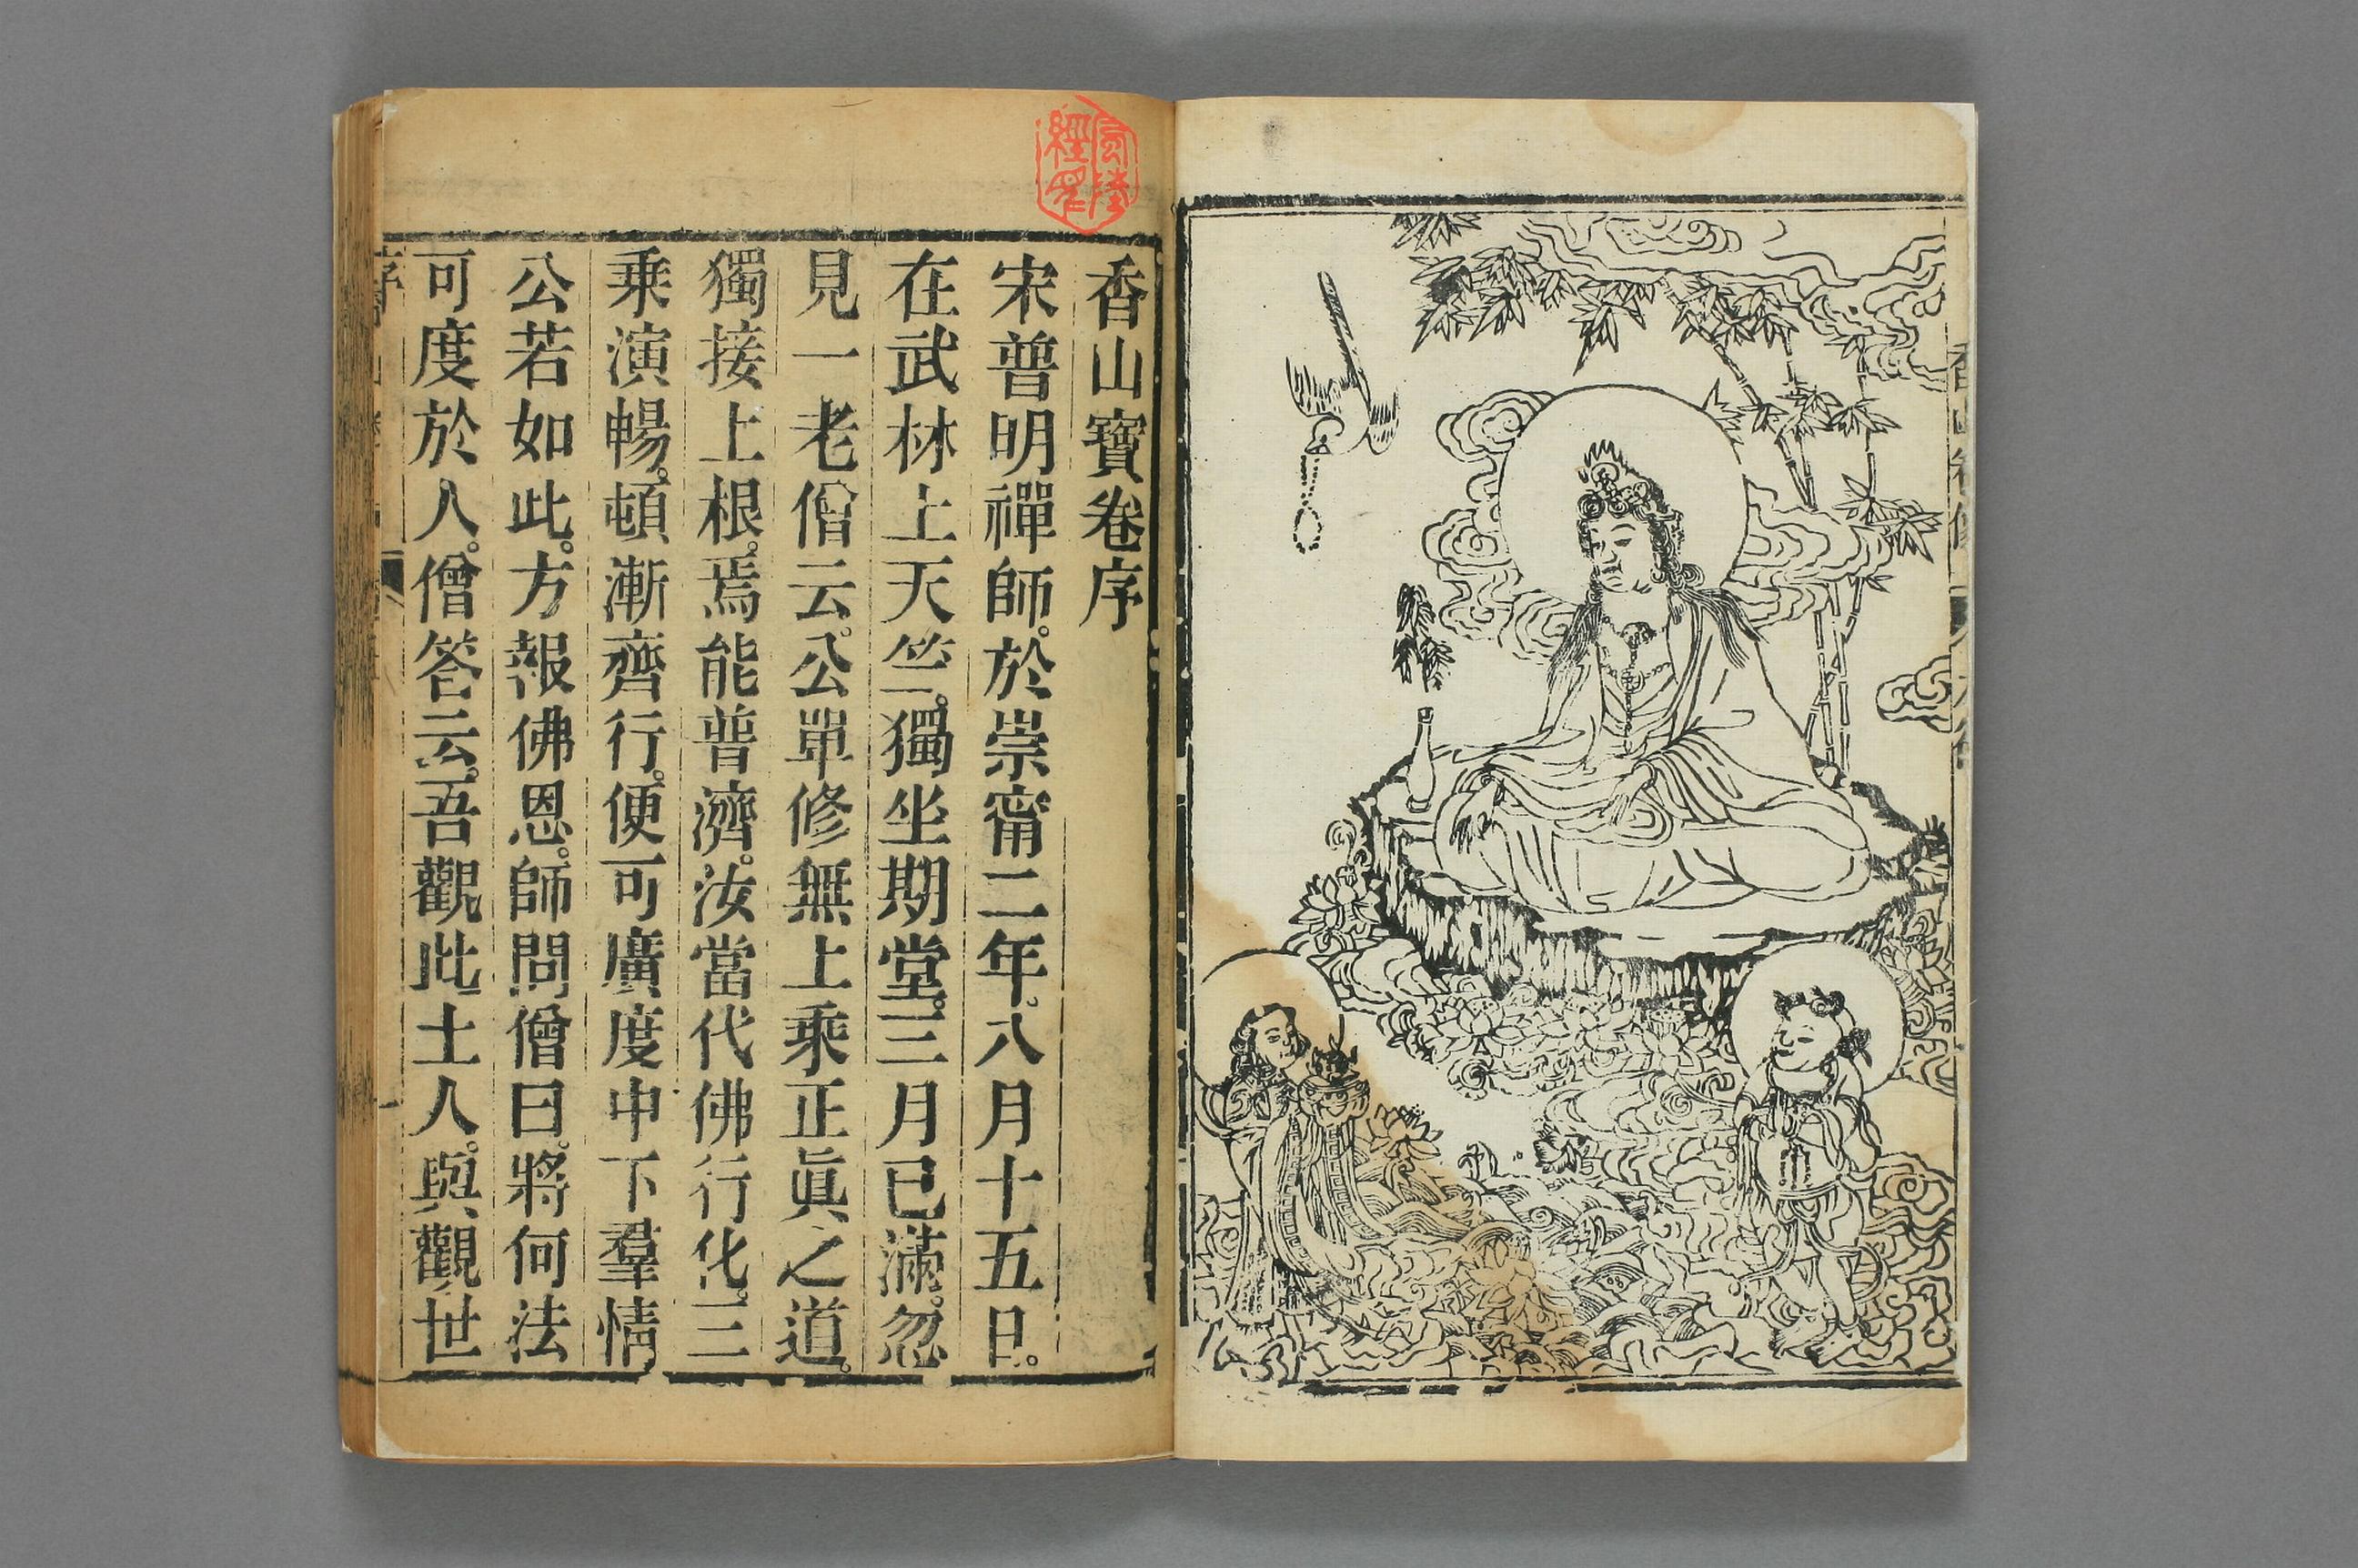 香山寶卷序
宋普明禪師。於崇甯二年。八月十五日。
在武林上天竺。獨坐期堂。三月已滿。忽
見一老僧云。公單修無上乘正眞之道。
獨接上根。焉能普濟。汝當代佛行化。三
乘演暢。頓漸齊行。便可廣度中下羣情
公若如此。方報佛恩。師問僧曰。將何法
可度於人。僧答云。吾觀此土人。與觀世